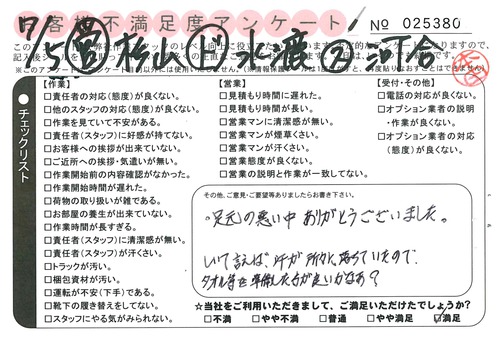 お客様不満足度アンケート
No 025380
7/15
杉山
水渡
河合
チェックリスト
【作業】
□責任者の対応(態度)が良くない。
□他のスタッフの対応(態度)が良くない。
□作業を見ていて不安がある。
□責任者(スタッフ)に好感が持てない。
□お客様への挨拶が出来ていない。
□ご近所への挨拶・気遣いが無い。
□作業開始前の内容確認がなかった。
□作業開始時間が遅れた。
□荷物の取り扱いが雑である。
□お部屋の養生が出来ていない。
□作業時間が長すぎる。
□責任者(スタッフ)に清潔感が無い。
□責任者(スタッフ)が汗臭い。
□トラックが汚い。
□梱包資材が汚い。
□運転が不安(下手)である。
□靴下の履き替えをしてない。
□スタッフにやる気がみられない。
【営業】
□見積もり時間に遅れた。
□見積もり時間が長い。
□営業マンに清潔感が無い。
□営業マンが煙草くさい。
□営業マンが汗くさい。
□営業態度が良くない。
□営業の説明と作業が一致してない。
【受付・その他】
□電話の対応が良くない。
□オプション業者の説明
・作業が良くない。
□オプション業者の対応
(態度)が良くない。
その他、ご意見・ご要望等ありましたらお書き下さい。
・足元の悪い中 ありがとうございました。
しいて言えば 汗が所々に落ちていたので、
タオル等を準備した方が良いかなぁ?
☆当社をご利用いただきまして、ご満足いただけたでしょうか?
□不満 □やや不満 □普通 □やや満足 □満足